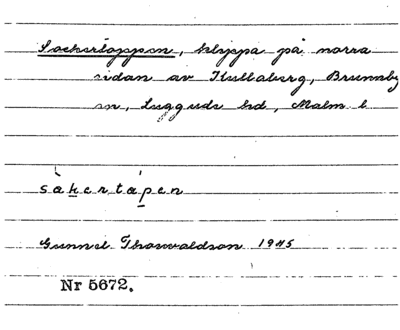 Sockertoppen, klippa på norra
sidan av Kullaberg, Brunnby
sn, Luggude hd, Malm l
sàkertápen
Gunnel Thorwaldson 1945
Nr 5672.